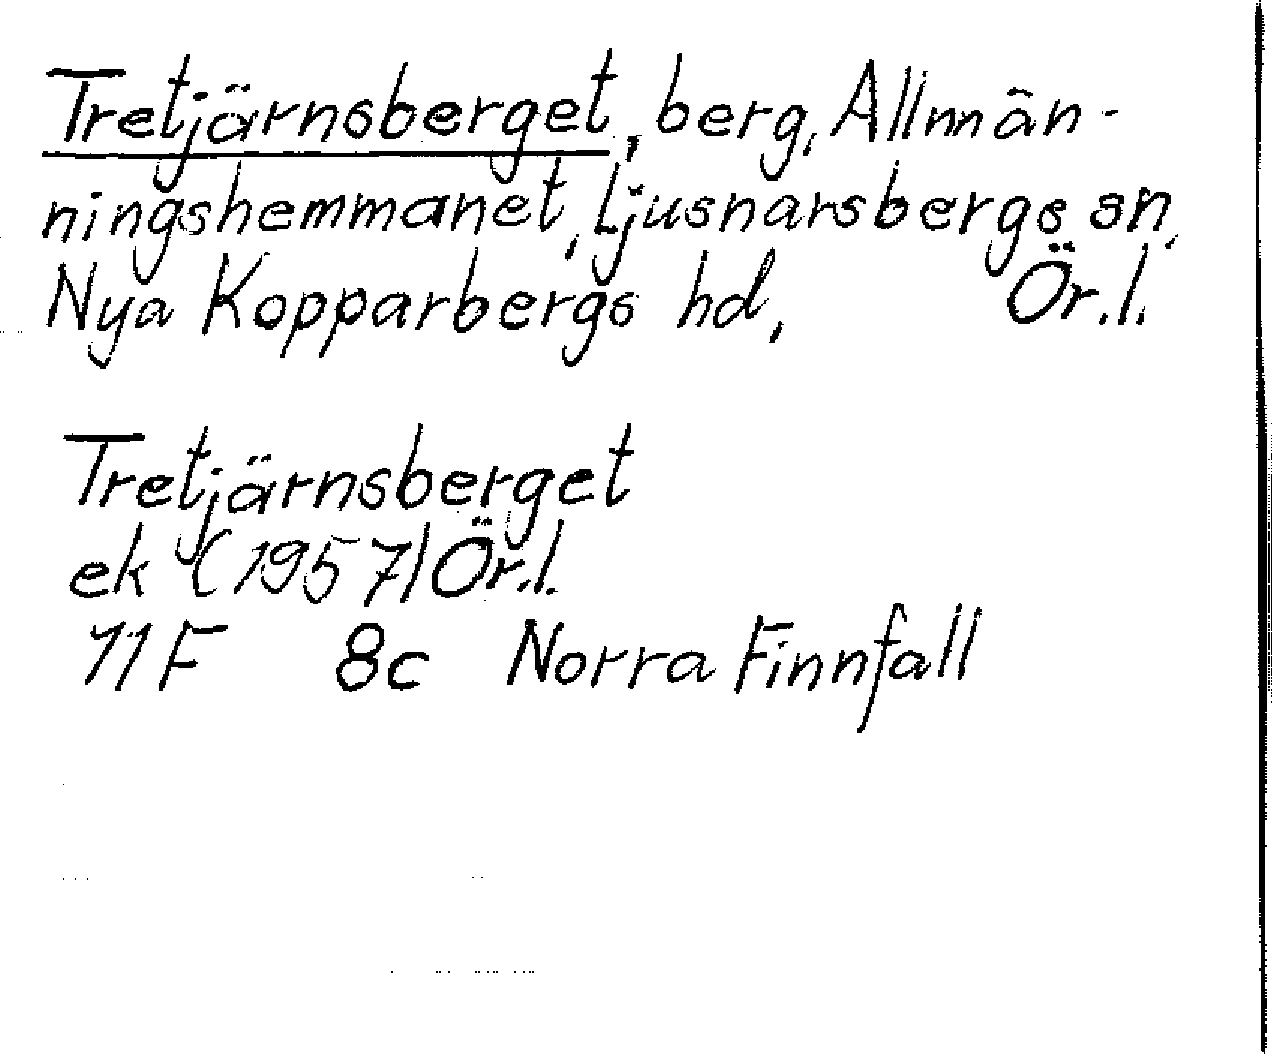 Tretjärnsberget, berg, Allmän-
ningshemmanet, Ljusnarsbergs sn,
Nya Kopparbergs hd, Ör.l.
Tretjärnsberget
ek (1957) Ör.l.
11F 8c Norra Finnfall